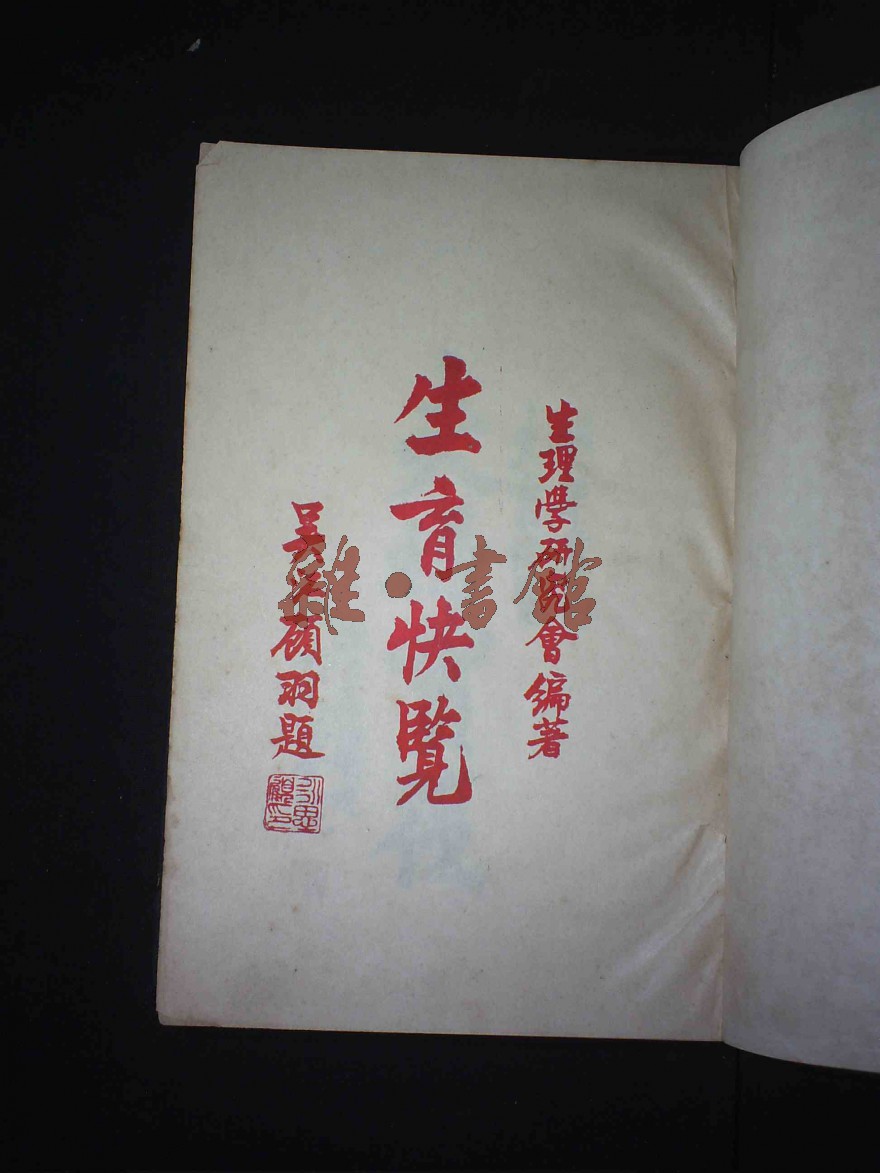 生理學研究會編著
生育快覽
吳 顧羽題
雜·書館